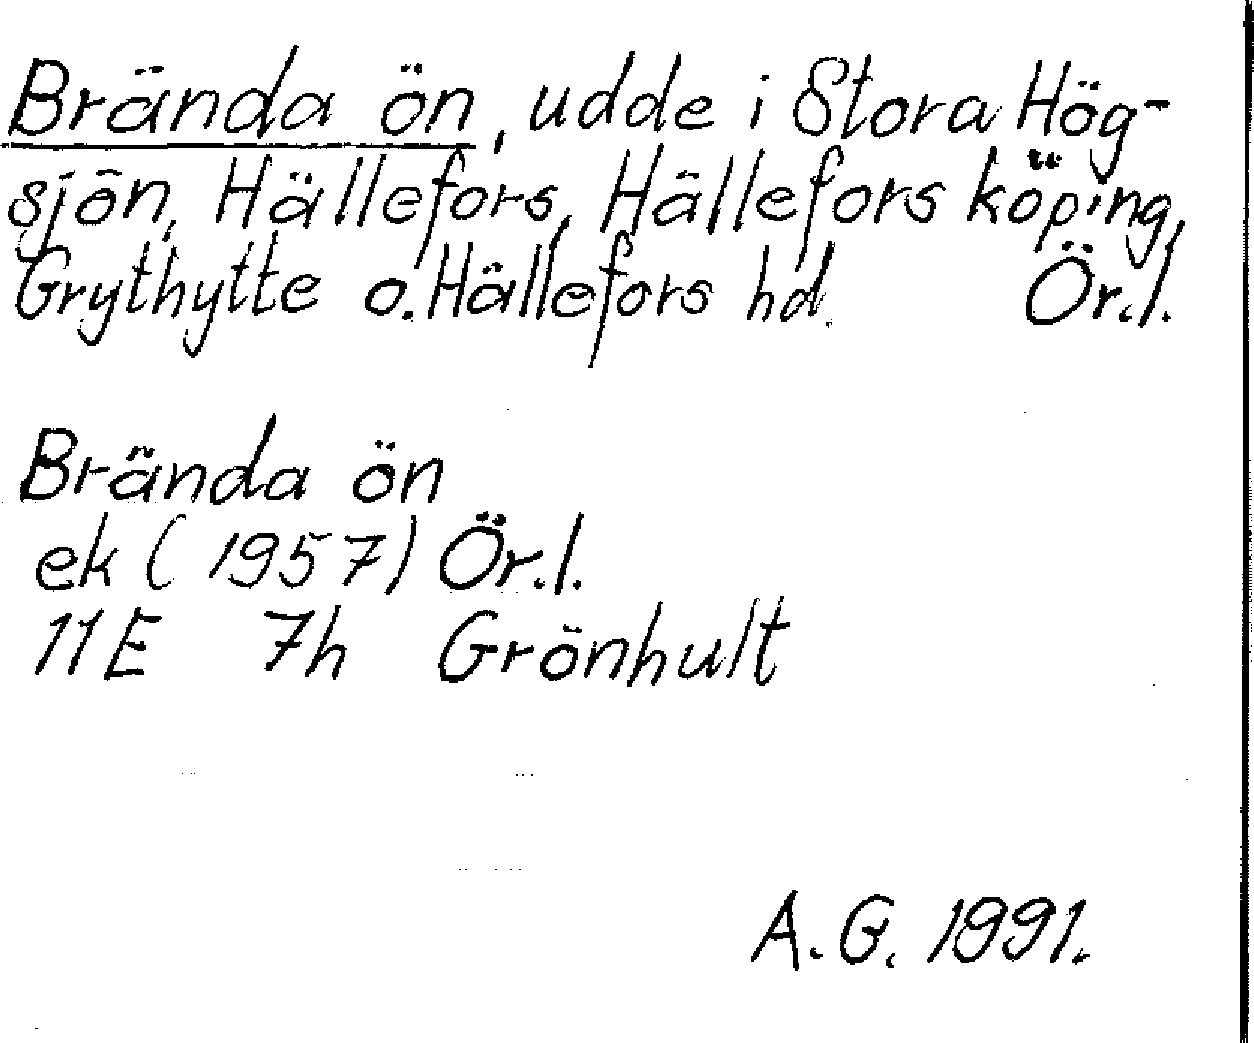 Brända ön, udde i Stora Hög-
sjön, Hällefors, Hällefors köping,
Grythytte o. Hällefors hd. Ör.l.
Brända ön
ek (1957) Ör.l.
11E 7h Grönhult
A.G. 1991.